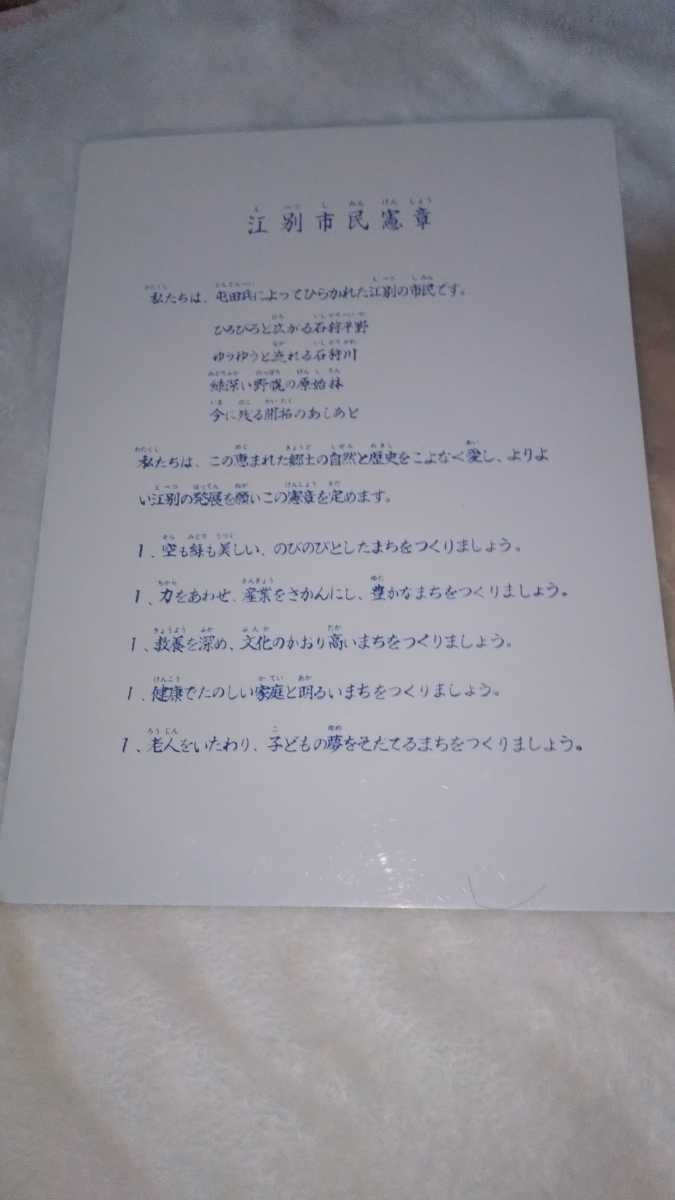 江別市民憲章
私たちは、屯田兵によってひらかれた江別の市民です。
ひろびろと広がる石狩平野
ゆうゆうと流れる石狩川
緑深い野幌の原始林
今に残る開拓のあしあと
私たちは、この恵まれた郷土の自然と歴史をこよなく愛し、よりよ
い江別の発展を願いこの憲章を定めます。
1、空も緑も美しい、のびのびとしたまちをつくりましょう。
1、力をあわせ、産業をさかんにし、豊かなまちをつくりましょう。
1、教養を深め、文化のかおり高いまちをつくりましょう。
1、健康でたのしい家庭と明るいまちをつくりましょう。
1、老人をいたわり、子どもの夢をそだてるまちをつくりましょう。